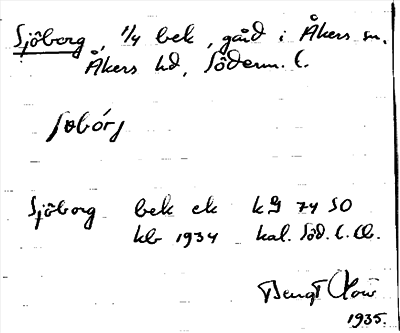 Sjöborg, 1/4 bek, gård i Åkers sn.
Åkers hd, Söderm. l.
Sjöborg bek ek kg 74 SO
kb 1934 kal. Söd. l.
Bengt
1935.